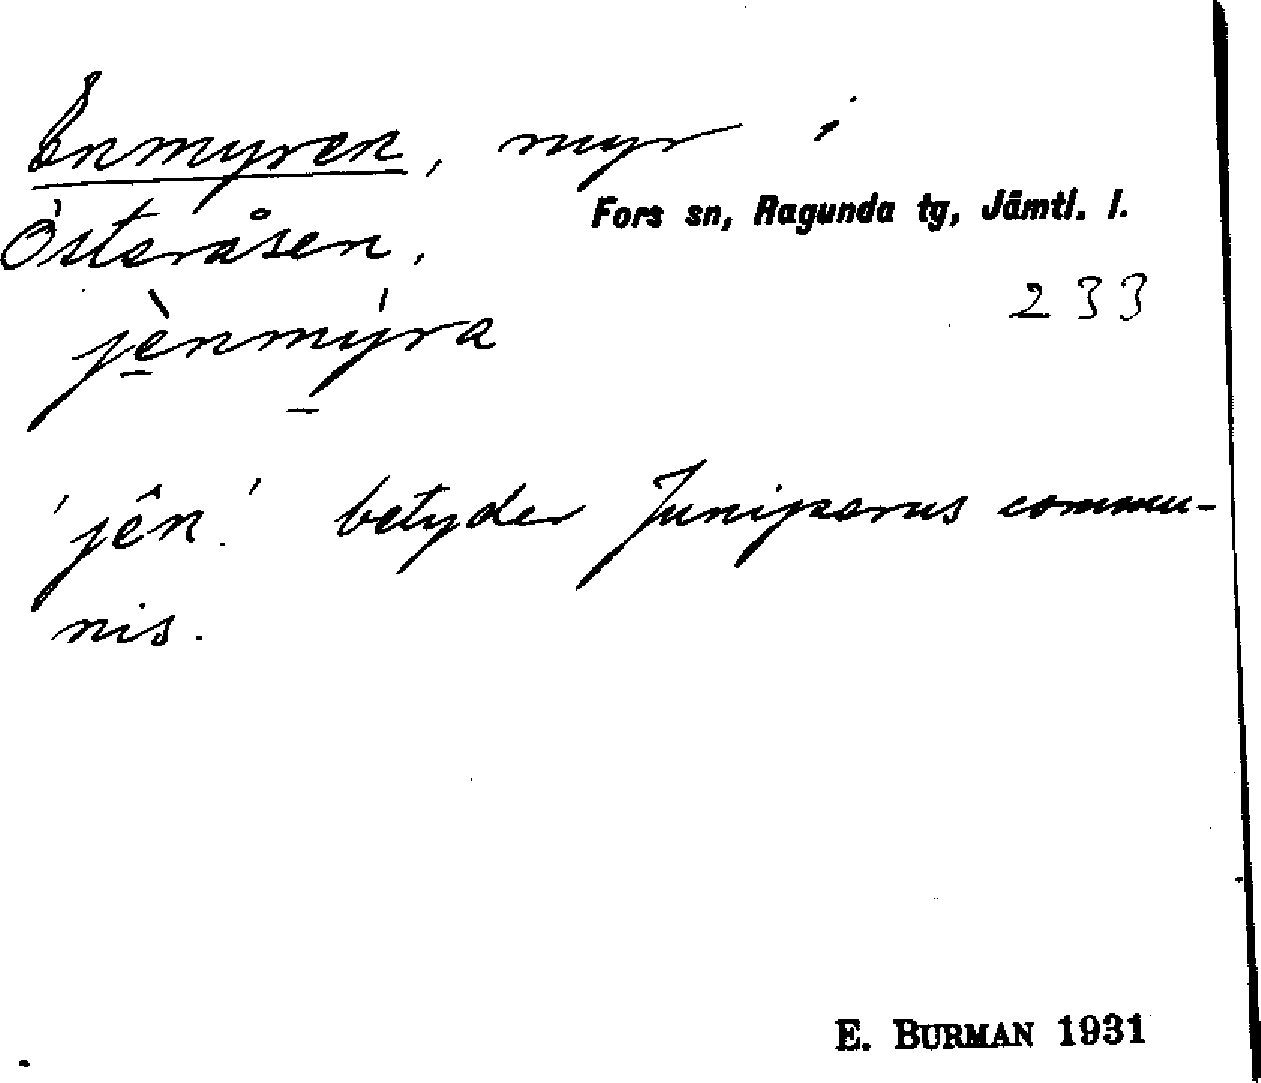 Enmyren, myr i
Fors sn, Ragunda tg, Jämtl. l.
Österåsen.
233
jènmýra
'jên' betyder Juniperus commu-
nis.
E. BURMAN 1931